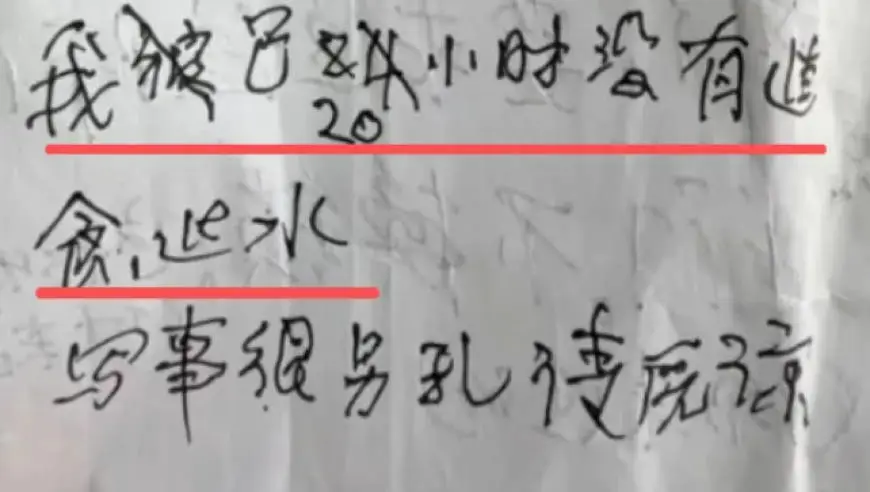 我已20小时没有进
食,进水
写事很另乱请原谅